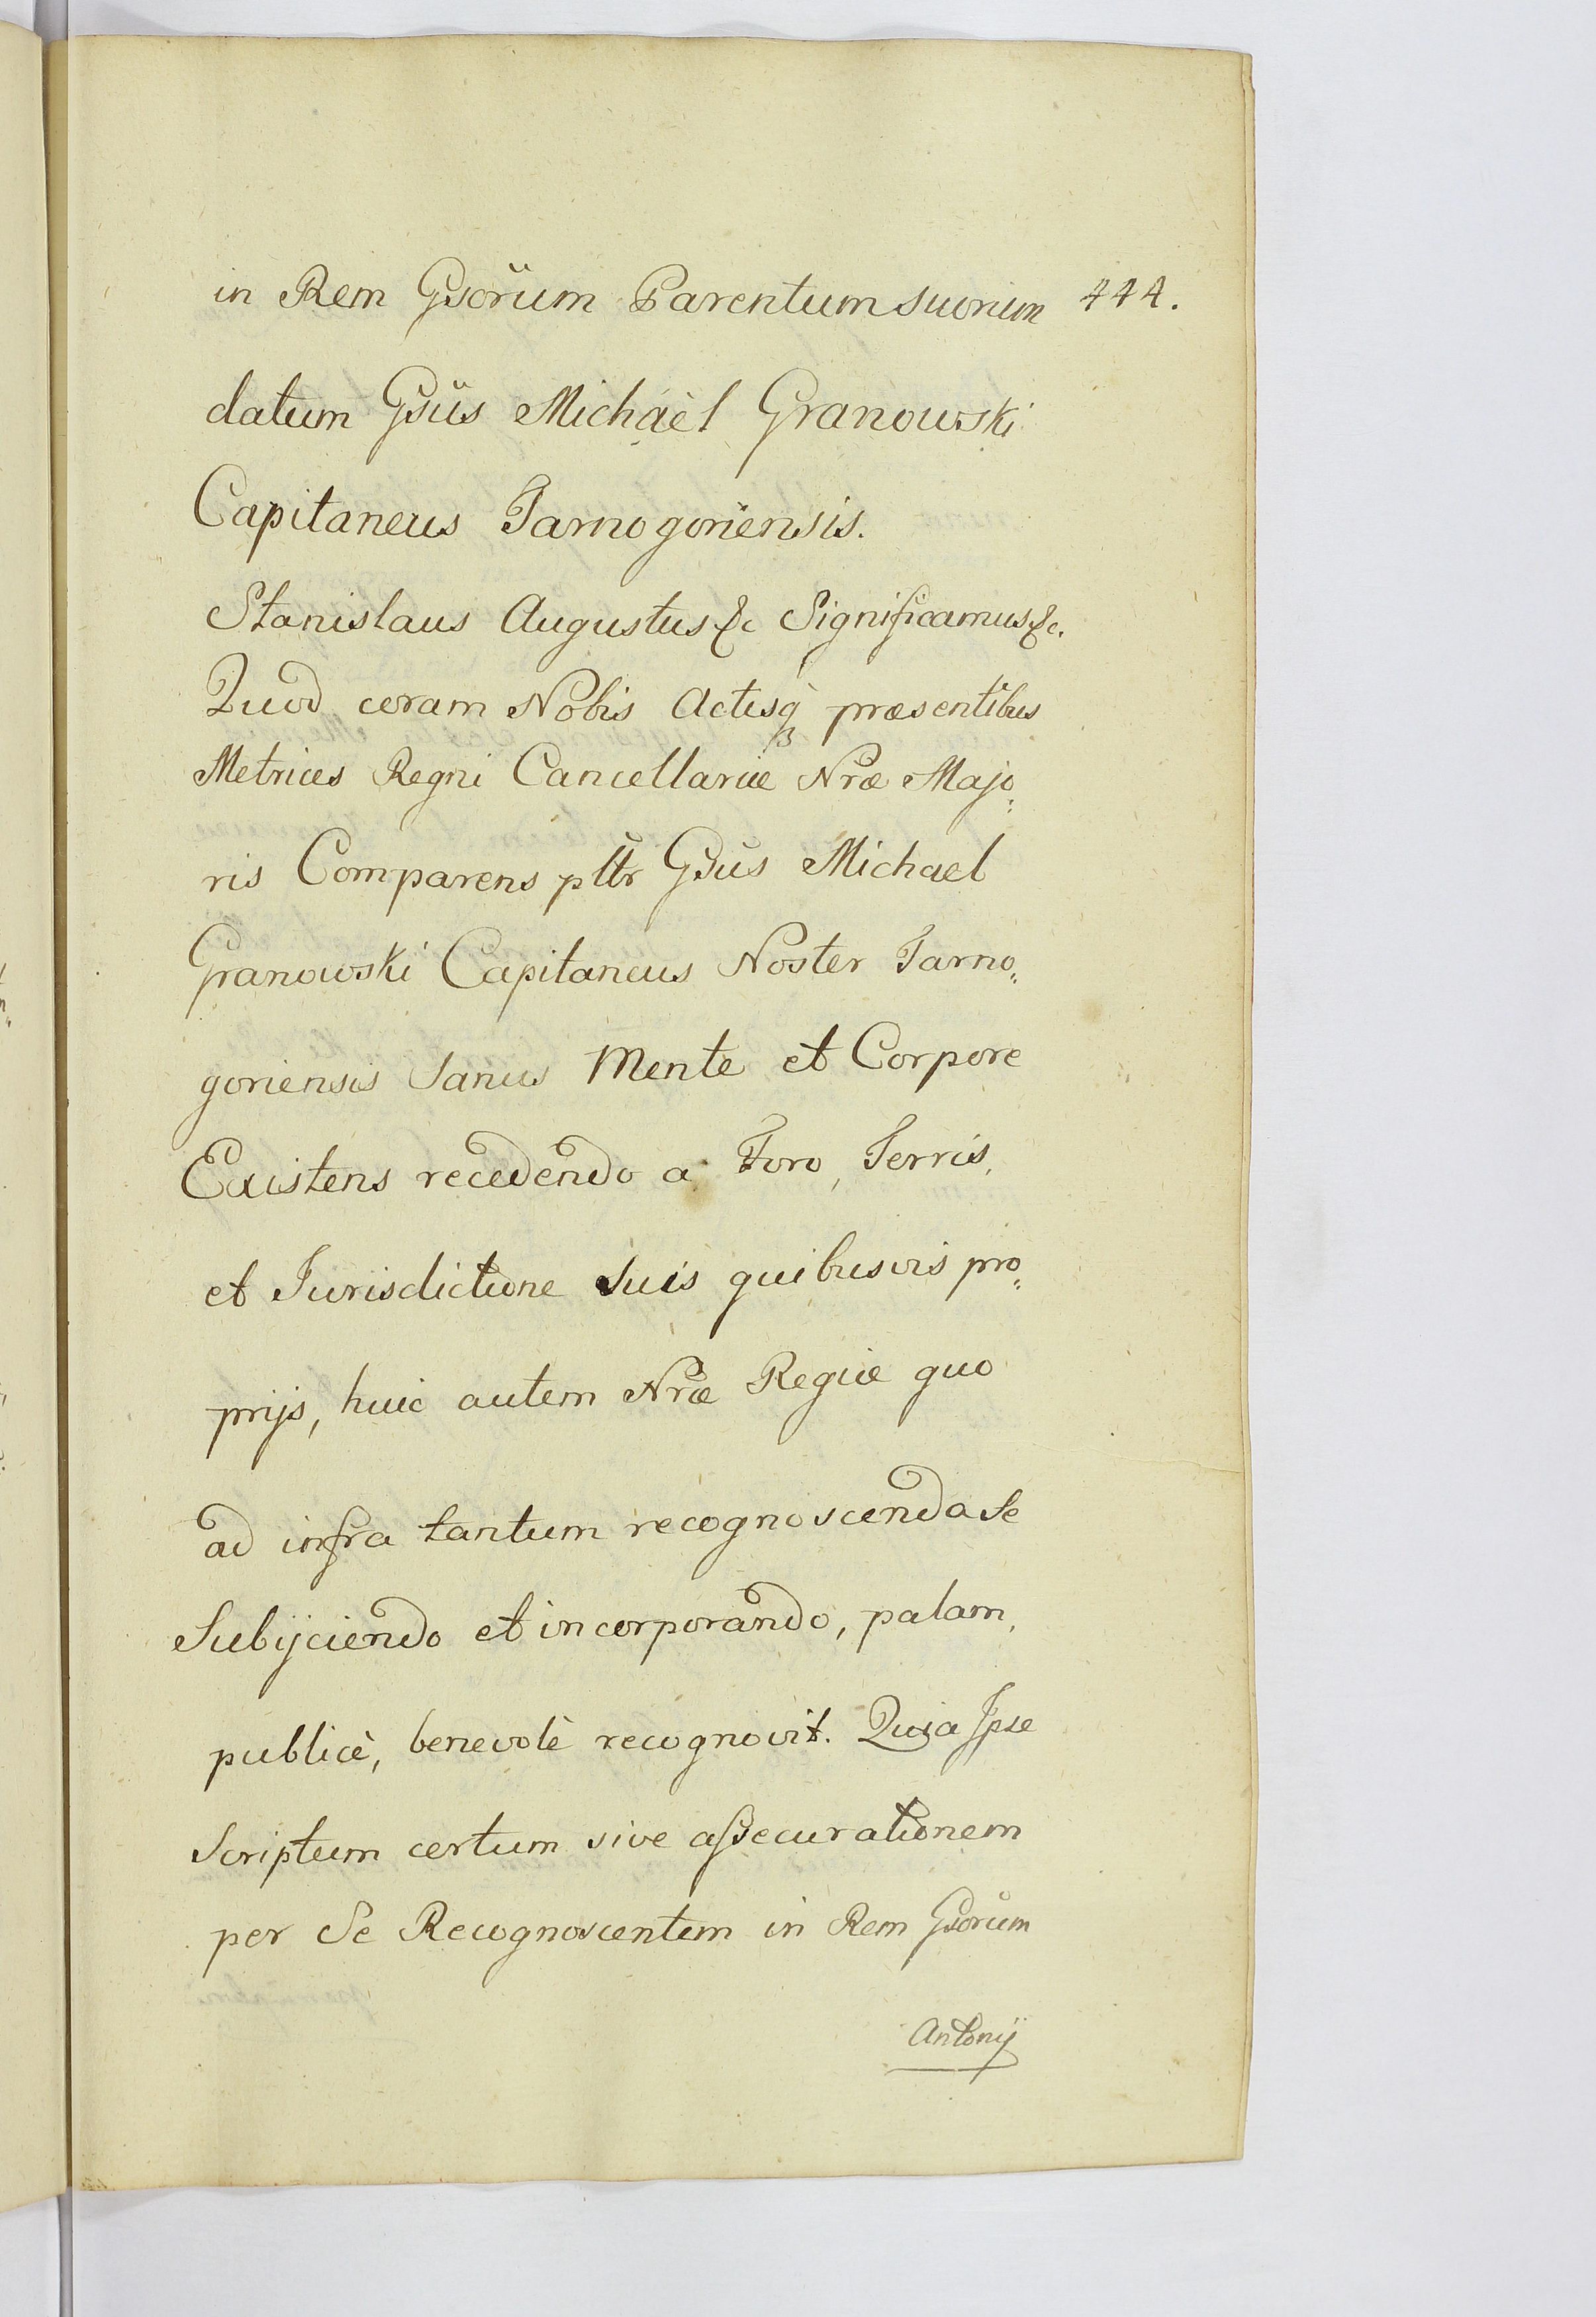 in Rem Gsorum Parentum suorum 444.
datum Gsus Michaèl Granowski
Capitaneus Tarnogoriensis.
Stanislaus Augustus &c Significamus &c.
Quod coram Nobis Actisq̀ praesentibus
Metrices Regni Cancellariæ Nræ Majo„
ris Comparens pltr Gsus Michael
Granowski Capitaneus Noster Tarno„
goriensis Sanus Mente et Corpore
Existens recedendo a Foro, Terris,
et Jurisdictione suis quibusvis pro„
prijs, huic autem Nræ Regiæ quo
ad infra tantum recognoscenda Se
Subijciendo et incorporando, palam,
publicè, benevolè recognovit. Quia Ipse
Scriptum certum sive aßecurationem
per Se Recognoscentem in Rem Gsorum
Antonij